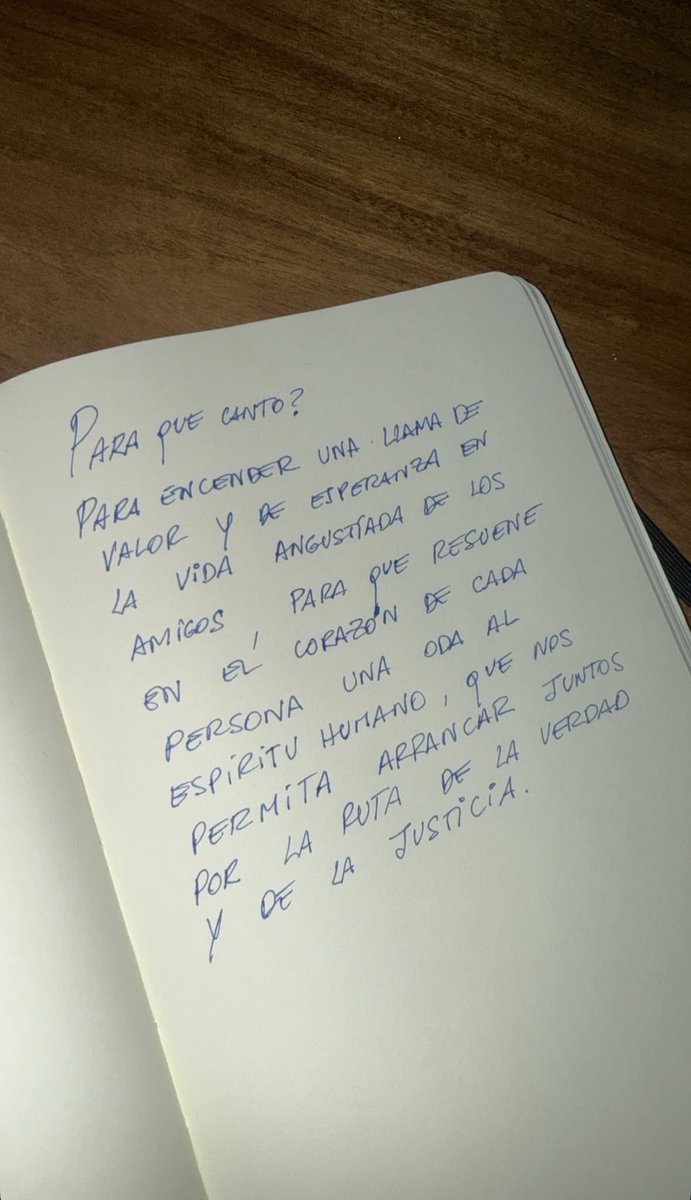 PARA QUE CANTO?
PARA ENCENDER UNA LLAMA DE
VALOR Y DE ESPERANZA EN
LA VIDA ANGUSTIADA DE LOS
AMIGOS, PARA QUE RESUENE
EN EL CORAZÓN DE CADA
PERSONA UNA ODA AL
ESPIRITU HUMANO, QUE NOS
PERMITA ARRANCAR JUNTOS
POR LA RUTA DE LA VERDAD
Y DE LA JUSTICIA.